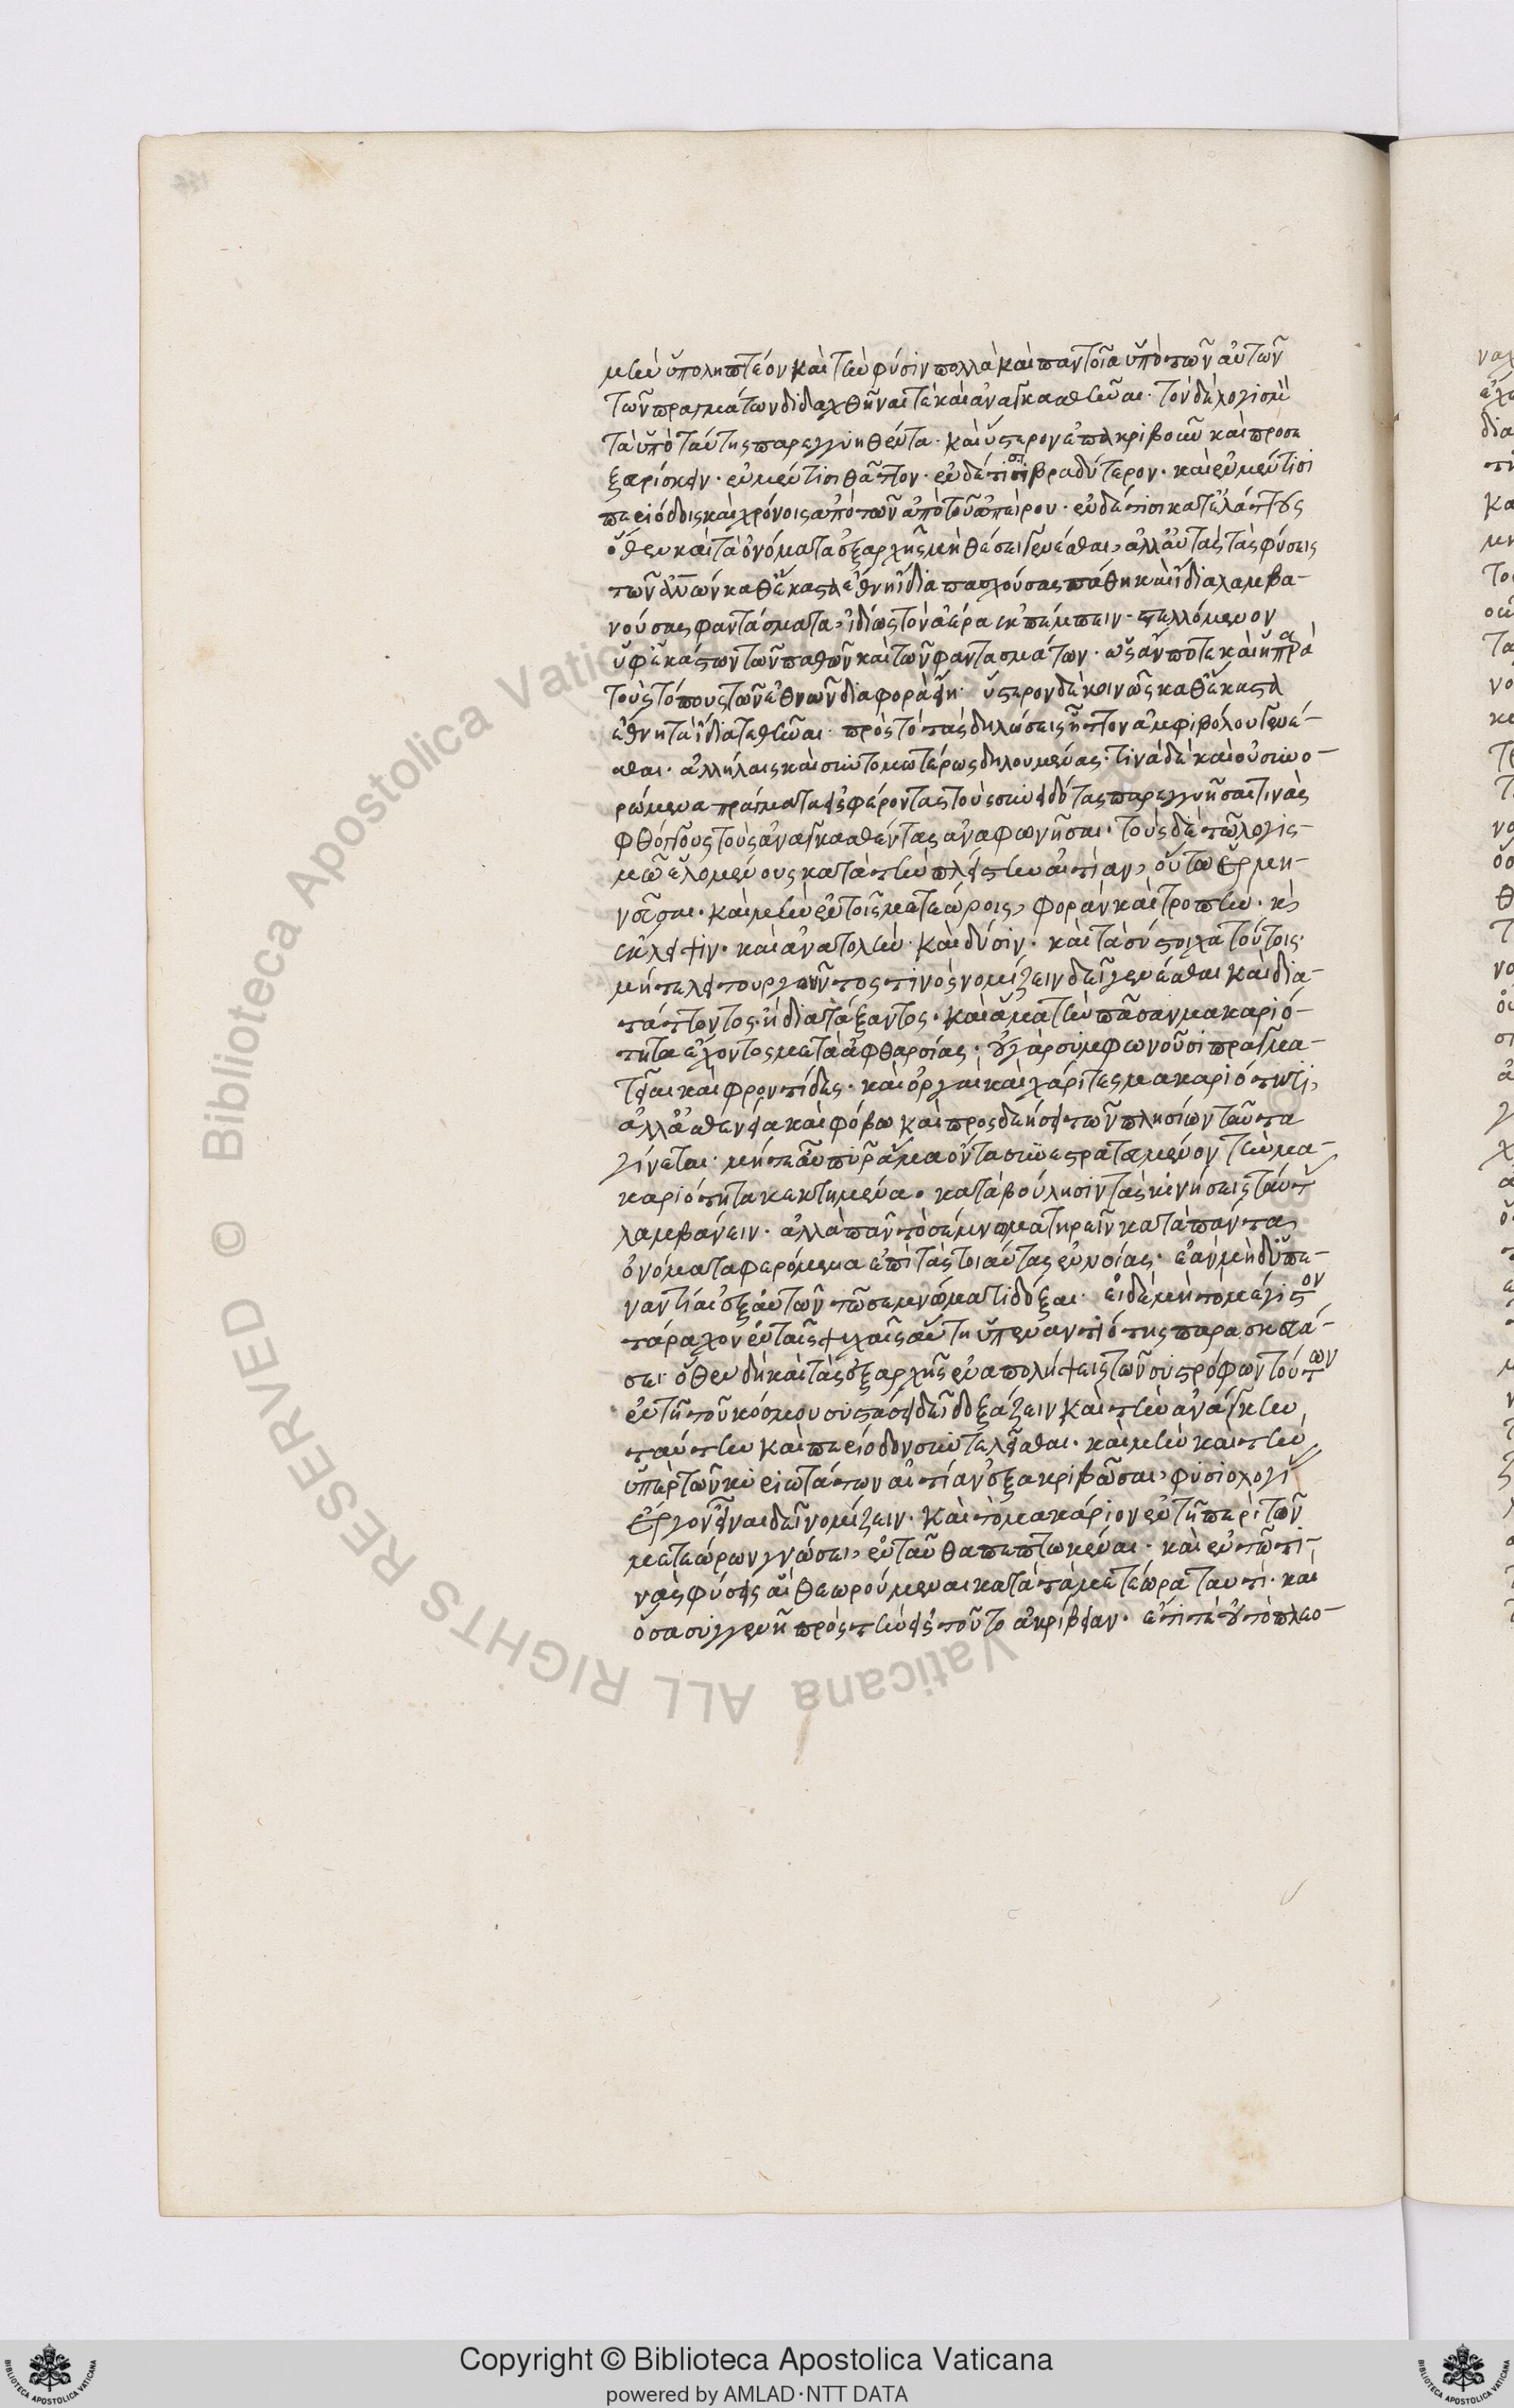 μὴν ὑποληπτέον καὶ τὴν φύσιν πολλὰ καὶ παντοῖα ὑπὸ τῶν αὐτῶν
τῶν πραγμάτων διδαχθῆναί τε καὶ ἀναγκασθῆναι· τὸν δὲ λογισμὸν
τὰ ὑπὸ ταύτης παρεγγυηθέντα· καὶ ὕστερον ἐπακριβοῦν καὶ προσε
ξευρίσκειν· ἐν μέν τισι θᾶττον· ἐν δέ τισι βραδύτερον· καὶ ἐν μέν τισι
περιόδοις καὶ χρόνοις ἀπὸ τῶν ἀπὸ τοῦ ἀπείρου· ἐν δέ τισι κατ' ἐλάττους
ὅθεν καὶ τὰ ὀνόματα ἐξ ἀρχῆς μὴ θέσει γενέσθαι, ἀλλ' αὐτὰς τὰς φύσεις
τῶν ἀνων καθ' ἕκαστα ἔθνη ἴδια πασχούσας πάθη καὶ ἴδια λαμβα-
νούσας φαντάσματα, ἰδίως τὸν ἀέρα ἐκπέμπειν στελλόμενον
ὑφ' ἑκάστων τῶν παθῶν καὶ τῶν φαντασμάτων· ὡς ἄν ποτε καὶ ἡ παρὰ
τοὺς τόπους τῶν ἐθνῶν διαφορὰ εἴη· ὕστερον δὲ κοινῶς καθ' ἕκαστα
ἔθνη τὰ ἴδια τεθῆναι πρὸς τὸ τὰς δηλώσεις ἧττον ἀμφιβόλου γενέ-
σθαι· ἀλλήλαις καὶ συντομωτέρως δηλουμένας· τινὰ δὲ καὶ οὐ συνο-
ρώμενα πράγματα εἰσφέροντας τοὺς συνειδότας παρεγγυῆσαί τινας
φθόγγους τοὺς ἀναγκασθέντας ἀναφωνῆσαι· τοὺς δὲ τῷ λογισ-
μῷ ἑλομένους κατὰ τὴν πλείστην αἰτίαν, οὕτως ἑρμη-
νεῦσαι· καὶ μὴν ἐν τοῖς μετεώροις, φορὰν καὶ τροπὴν· καὶ
ἔκλειψιν· καὶ ἀνατολὴν καὶ δύσιν· καὶ τὰ σύστοιχα τούτοις
μήτε λειτουργοῦντός τινος νομίζειν δεῖ γενέσθαι καὶ δια-
τάττοντος ἢ διατάξαντος· καὶ ἅμα τὴν πᾶσαν μακαριό-
τητα ἔχοντος μετὰ ἀφθαρσίας· οὐ γὰρ συμφωνοῦσι πραγμα-
τεῖαι καὶ φροντίδες· καὶ ὀργαὶ καὶ χάριτες μακαριότητι,
ἀλλ' ἀσθενείᾳ καὶ φόβῳ καὶ προσδεήσει τῶν πλησίων ταῦτα
γίνεται· μήτε αὖ πῦρ ἅμα ὄντα συνεστραμμένον τὴν μα-
καριότητα κεκτημένα· κατὰ βούλησιν τὰς κινήσεις ταύτ
λαμβάνειν· ἀλλὰ πᾶν τὸ σέμνωμα τηρεῖν κατὰ πάντα
ὀνόματα φερόμενα ἐπὶ τὰς τοιαύτας ἐννοίας· ἐὰν μὴ δ' ὑπε-
ναντίαι ἐξ αὐτῶν τῷ σεμνώματι δόξαι· εἰ δὲ μὴ τὸ μέγιστον
τάραχον ἐν ταῖς ψυχαῖς αὕτη ὑπεναντιότης παρασκευά-
σει ὅθεν δὴ καὶ τὰς ἐξ ἀρχῆς ἐναπολήψεις τῶν συστρόφων τούτων
ἐν τῇ τοῦ κόσμου συστάσει δεῖ δοξάζειν καὶ τὴν ἀνάγκην
ταύτην καὶ περίοδον συντελεῖσθαι· καὶ μὴν καὶ τὴν
ὑπὲρ τῶν κυριωτάτων αἰτίαν ἐξακριβῶσαι, φυσιολογί
ἔργον εἶναι δεῖ νομίζειν· καὶ τὸ μακάριον ἐν τῇ περὶ τῶν
μετεώρων γνώσει, ἐνταῦθα πεπτωκέναι· καὶ ἐν τῷ τί-
νες φύσεις αἱ θεωρούμεναι κατὰ τὰ μετέωρα ταυτί· καὶ
ὅσα συγγενῆ πρὸς τὴν εἰς τοῦτο ἀκρίβειαν· ἔτι τε οὐ τὸ πλεο-
Copyright © Biblioteca Apostolica Vaticana
powered by AMLAD·NTT DATA